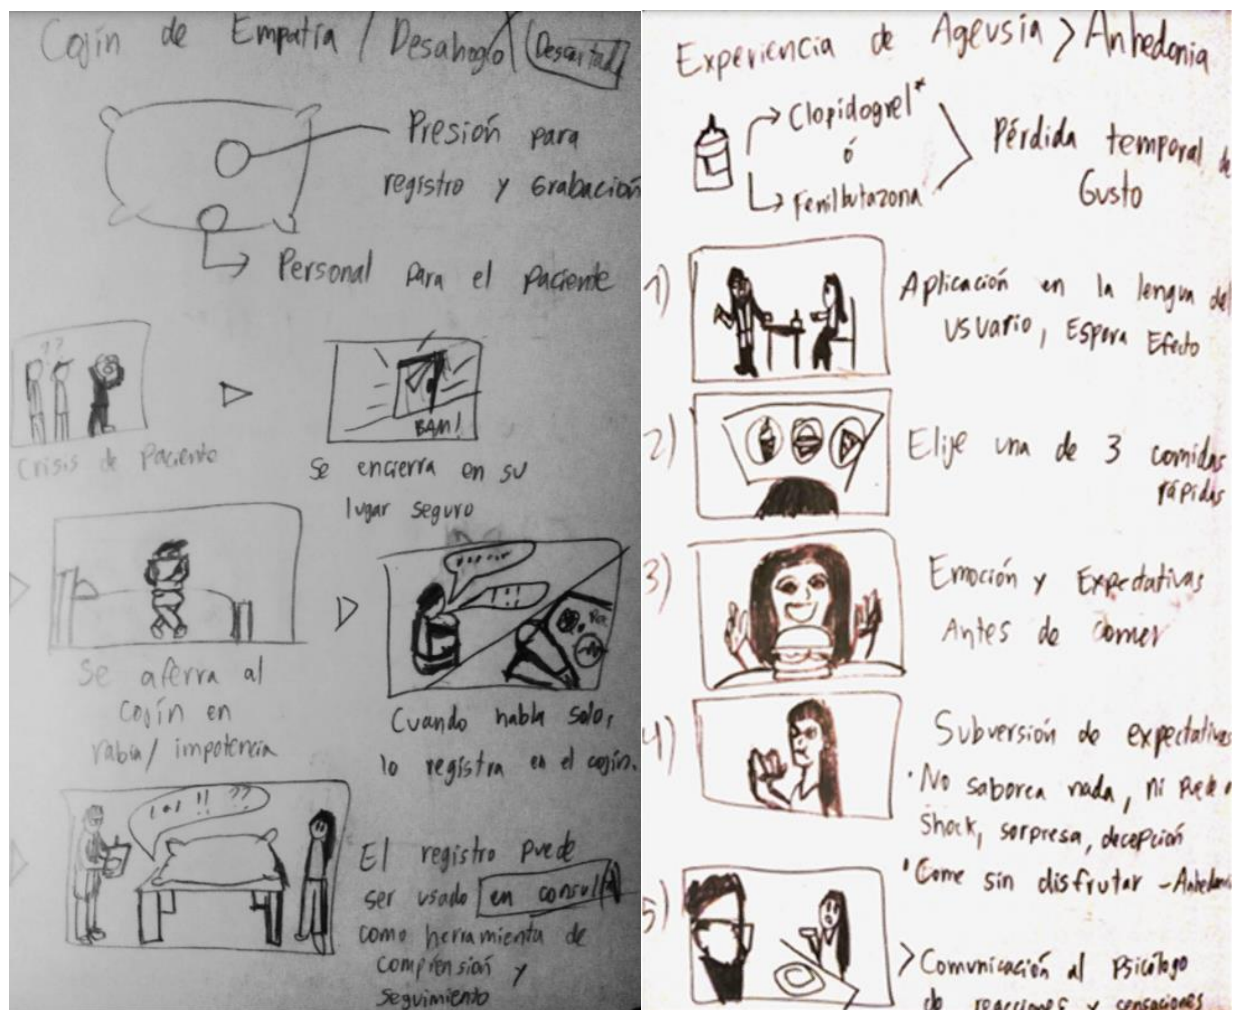 Cojín de Empatía / Desahogo
Presión para
registro y Grabación
Personal para el paciente
??
Crisis de Paciente
BAM!
Se encierra en su
lugar seguro
Se aferra al
Cojín en
rabia/ impotencia
!!!
Cuando habla solo,
lo registra en el cojín.
!! ??
El registro puede
ser usado en consulta
como herramienta de
comprensión y
seguimiento
Experiencia de Ageusia > Anhedonia
Clopidogrel*
ó
Fenilbutazona
Pérdida temporal
Gusto
1)
Aplicación en la lengua del
usuario, Espera Efecto
2)
Elije una de 3 comidas
rápidas
3)
Emoción y Expectativas
Antes de Comer
4)
Subversión de expectativas
· No saborea nada, ni
Shock, sorpresa, decepción
· Come sin disfrutar -
5)
> Comunicación al Psicólogo
de reacciones y sensaciones